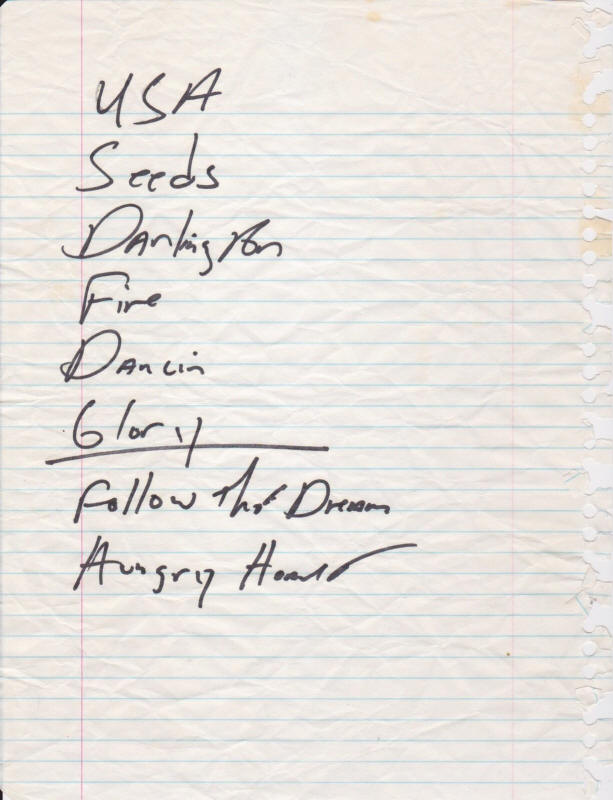 USA
Seeds
Darlington
Fire
Dancin
Glory
Follow that Dream
Hungry Heart